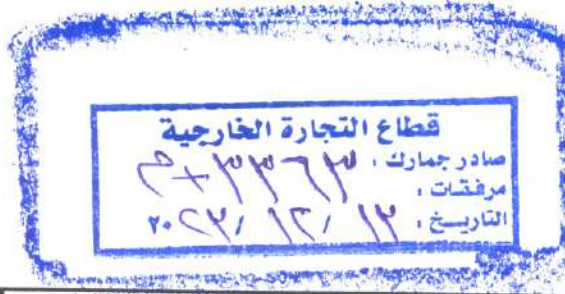 قطاع التجارة الخارجية
صادر جمارك : ٣٣٦٣ + م
مرفقات :
التاريخ : ١٣ / ١٢ / ٢٠٢٣